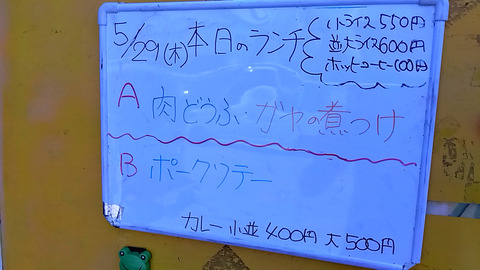 5/29(木)本日のランチ
小ライス550円
並大ライス600円
ホットコーヒー100円
A 肉どうふ・ガヤの煮つけ
B ポークソテー
カレー小並400円 大500円